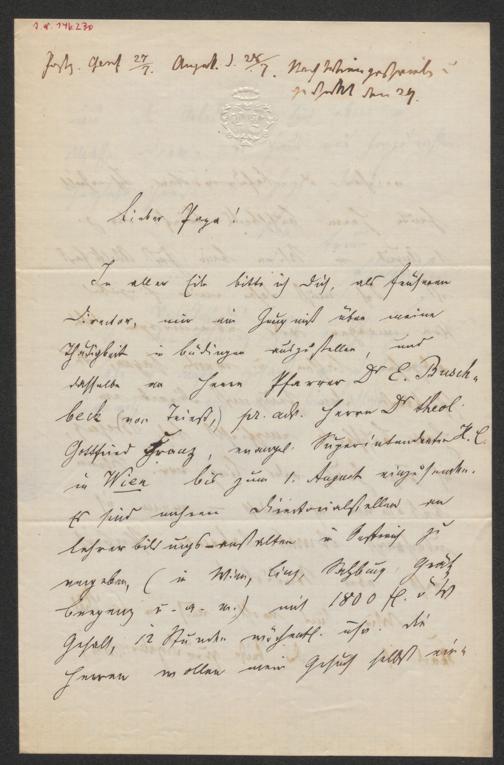 Lieber Papa!
In aller Eile bitte ich Dich, als früheren
Director, mir ein Zeugniß über meine
Thätigkeit in Büdingen auszustellen, und
dasselbe an Herrn Pfarrer Dr E. Busch-
beck (von Triest,) pr. adr. Herrn Dr theol.
Gottfried Franz, evangel. Superintendenten H. C.
in Wien bis zum 1. August einzusenden.
Es sind mehrere Directorialstellen an
Lehrerbildungs-anstalten in Östreich zu
vergeben, (in Wien, Linz, Salzburg, Gratz
Bregenz u. a. m.) mit 1800 fl. ö. W
Gehalt, 12 Stunden wöchentl. usw. Die
Herren wollen mein Gesuch selbst ein-